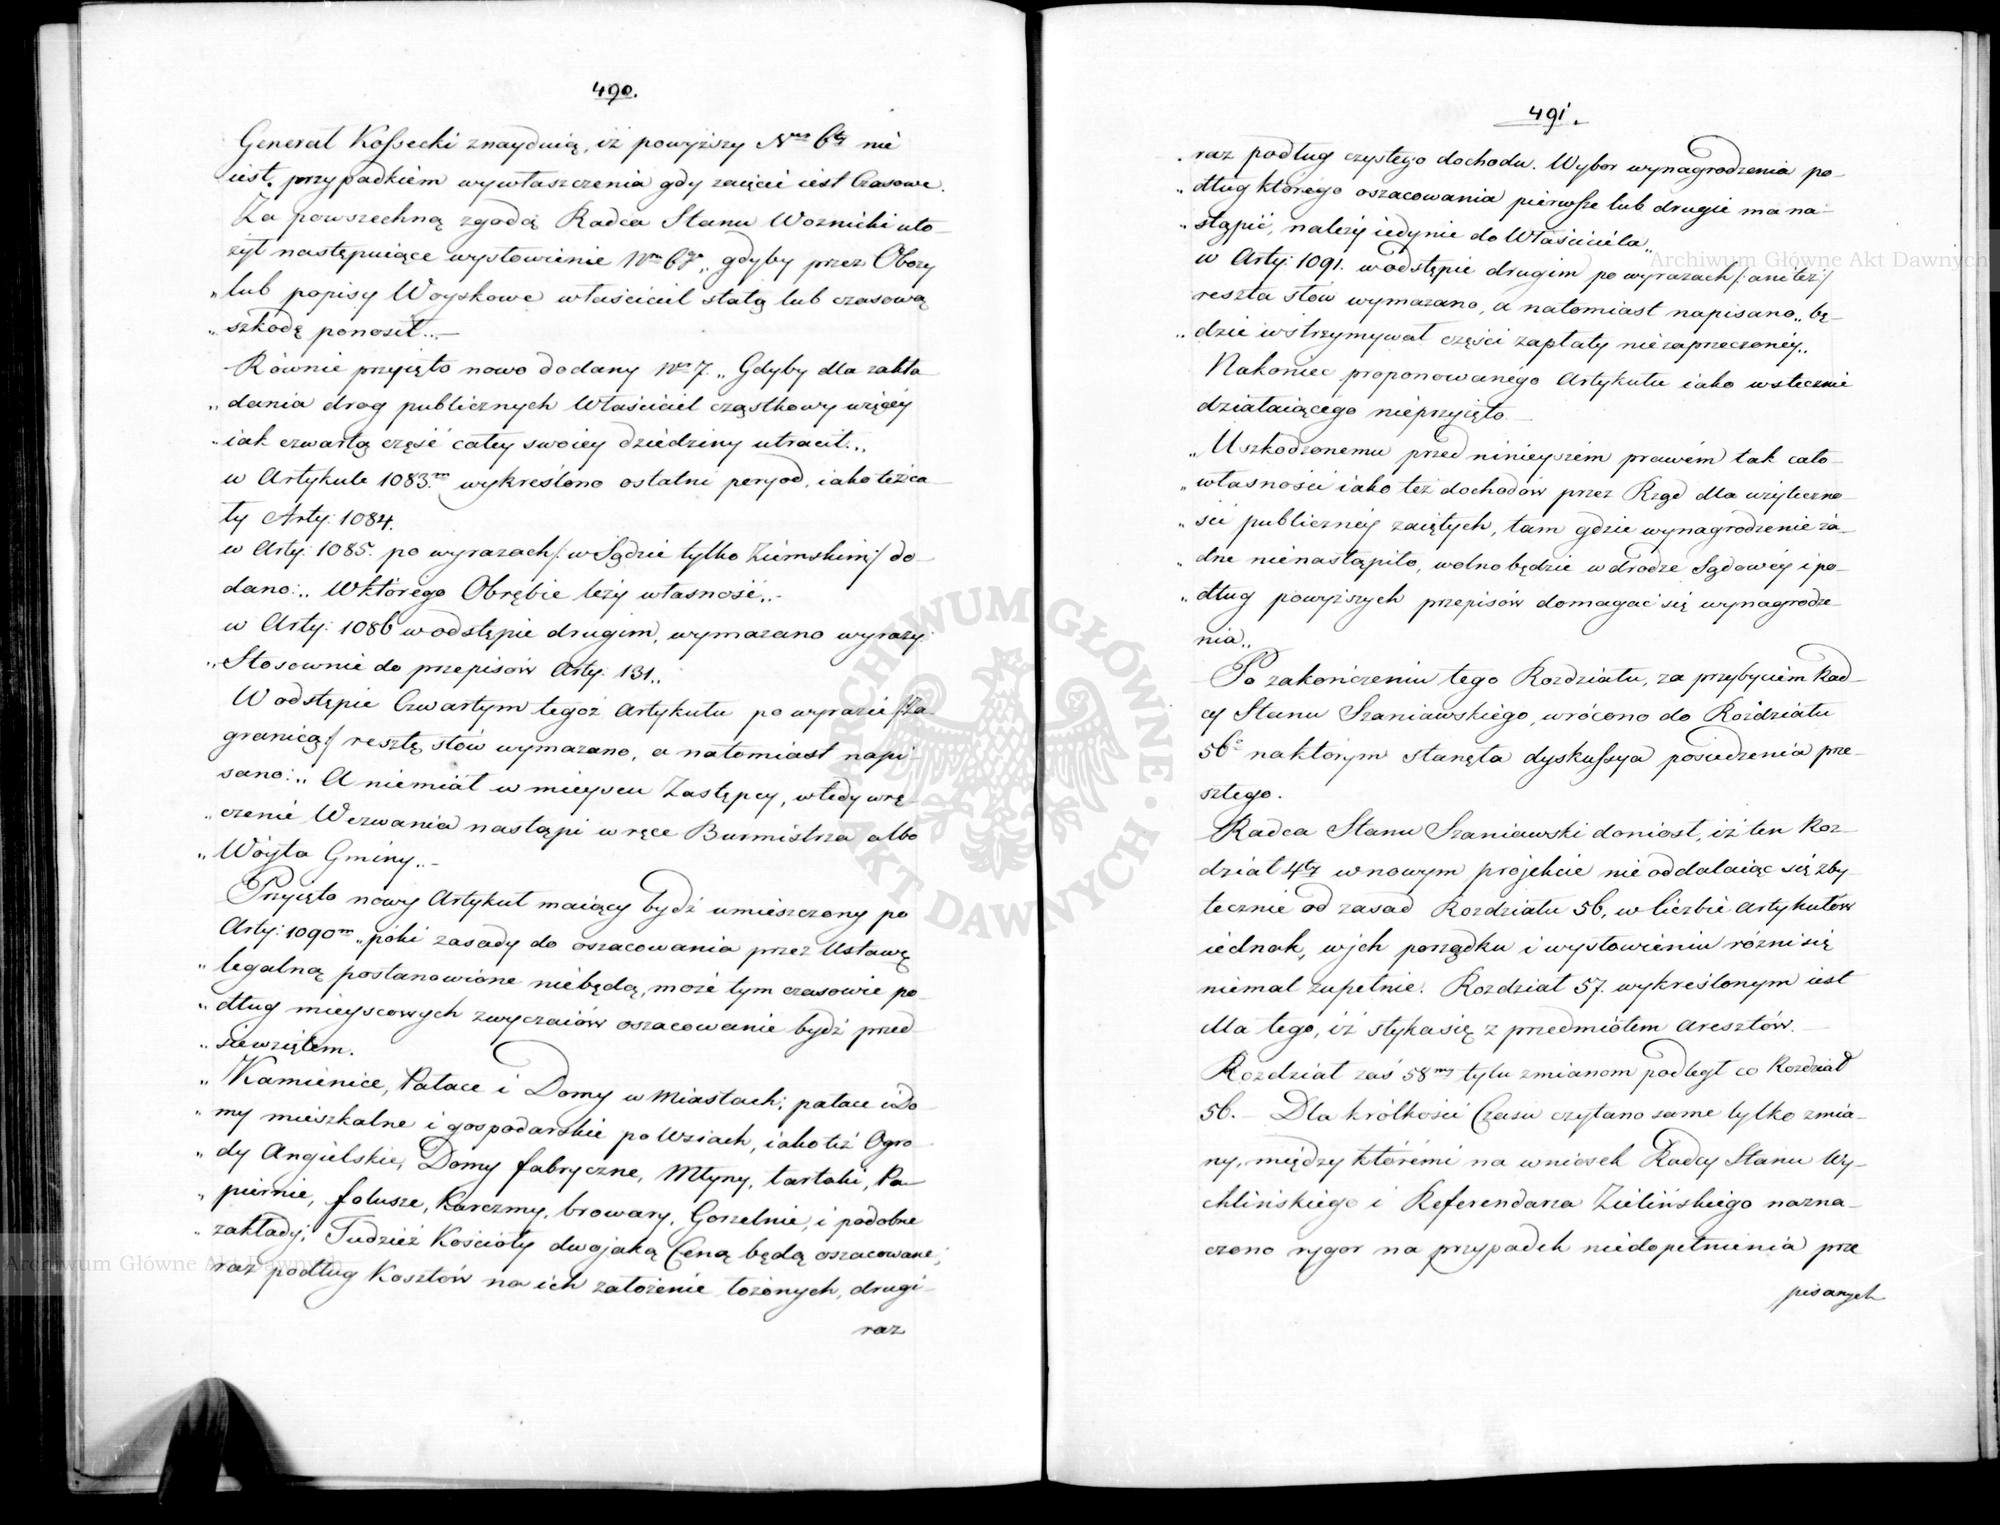 490.
Generał Kossecki znayduią, iż powyższy Nro 6ty nie
iest przypadkiem wywłaszczenia gdy zaięcie iest Czasowe.
Za powszechną zgodą Radca Stanu Woznicki uło-
żył następuiące wysłowienie Nro 6go „gdyby przez Obozy
„lub popisy Woyskowe właściciel stałą lub czasową
„szkodę ponosił.„—
Równie przyięto nowo dodany Nro 7. „Gdyby dla zakła-
„dania drog publicznych Właściciel cząstkowy więcéy
„iak czwartą część całey swoiey dziedziny utracił.„
w Artykule 1083.m wykréślono ostatni peryod, iako też ca-
ły Arty: 1084.
w Arty: 1085. po wyrazach /: w Sądzie tylko Ziemskim :/ do-
dano: „W którego Obrębie leży własność„.-
w Arty: 1086 w odstępie drugim, wymazano wyrazy:
„Stosownie do przepisów Arty: 131„
W odstępie Czwartym tegoż Artykułu po wyrazie /: Za
granicą :/ resztę słów wymazano, a natomiast napi-
sano: „A niemiał w mieyscu Zastępcy, wtedy wrę-
„czenie Wezwania nastąpi w ręce Burmistrza albo
„Wóyta Gminy„.-
Przyięto nowy Artykuł maiący bydź umieszczony po
Arty: 1090m „póki zasady do oszacowania przez Ustawę
„legalną postanowione niebędą, może tym czasowie po-
„dług mieyscowych zwyczaiów oszacowanie bydź przed-
„siewziętem.
„Kamienice, Pałace i Domy w Miastach; pałace i Do-
„my mieszkalne i gospodarskie po Wsiach, iako też Ogro-
„dy Angielskie, Domy fabryczne, Młyny, tartaki, Pa-
„piernie, folusze, Karczmy, browary, Gorzelnie, i podobne
„zakłady; Tudzież Kościoły dwojaką Ceną będą oszacowane;
raz podług Kosztów na ich założenie łożonych, drugi-
raz
491.
„raz podług czystego dochodu. Wybor wynagrodzenia po-
„dług którego oszacowania pierwsze lub drugie ma na-
„stąpić, należy iedynie do Właściciela„
w Arty: 1091. w odstępie drugim po wyrazach /: ani też :/
reszta słów wymazano, a natomiast napisano „bę-
„dzie wstrzymywał części zapłaty niezaprzeczonéy„
Nakoniec proponowanego Artykułu iako wstecznie
działaiącego nieprzyięto.—
„Uszkodzonemu przed ninieyszém prawem tak cało-
„własności iako też dochodów przez Rząd dla użyteczno-
„ści publicznéy zaiętych, tam gdzie wynagrodzenie ża-
„dne nienastąpiło, wolno będzie w drodze Sądowéy i po-
„dług powyższych przepisów domagać się wynagrodze-
nia„
Po zakończeniu tego Rozdziału, za przybyciem Rad-
cy Stanu Szaniawskiego, wrócono do Rozdziału
56o na którym stanęła dyskussya posiedzenia prze-
szłego.
Radca Stanu Szaniawski doniosł, iż ten Roz-
dział 4ty w nowym projekcie nie oddalaiąc się zby-
tecznie od zasad Rozdziału 56, w liczbie Artykułów
iednak, w ich porządku i wysłowieniu różni się
niemal zupełnie. Rozdział 57. wykréślonym iest
dla tego, iż styka się z przedmiotem Aresztów.—
Rozdział zaś 58my tylu zmianom podległ co Rozdział
56.— Dla krótkości Czasu czytano same tylko zmia-
ny, między którémi na wniosek Radcy Stanu Wy-
chlińskiego i Referendarza Zielińskiego nazna-
czono rygor na przypadek niedopełnienia prze
pisanych
Archiwum Główne Akt Dawnych
Archiwum Główne Akt Dawnych
ARCHIWUM GŁÓWNE AKT DAWNYCH